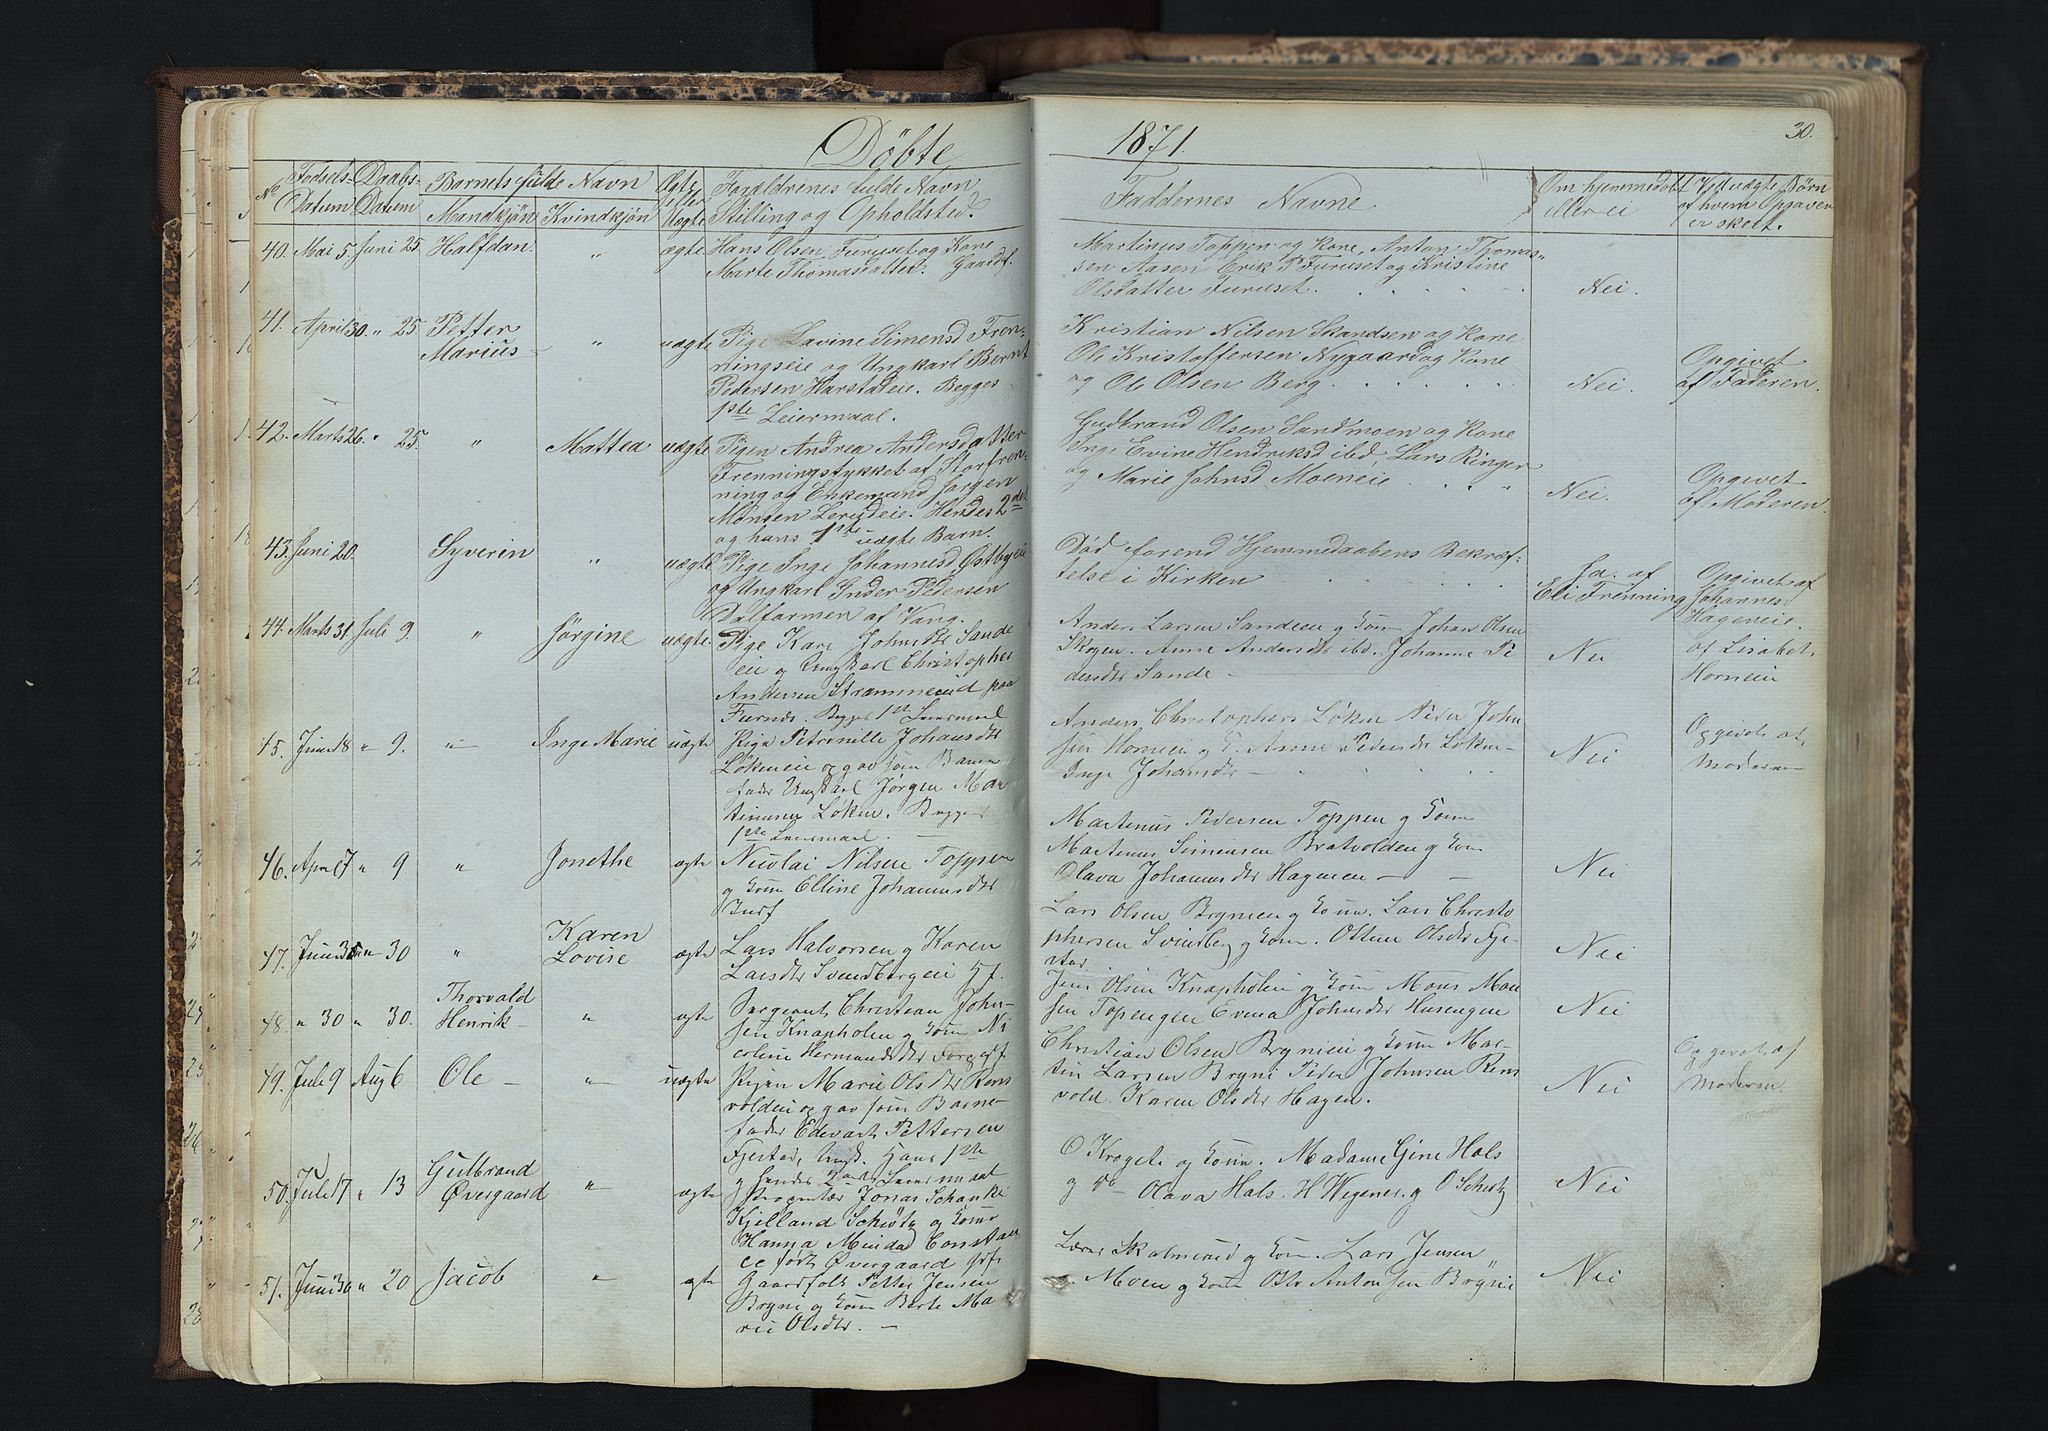 Döbte
1871.
30.
No
Födsels-
Datum
Daabs-
Datum
Barnets fulde Navn
Mandkjön
Kvindkjön
Ægte
eller
Uægte
Forældrenes fulde Navn
Stilling og Opholdsted.
Faddernes Navne.
Om hjemmedøbt
eller ei
Ved uægte Börn
af hvem Opgaven
er skeet.
40. Mai 5. Juni 25. Halfdan. " ægte Hans Olsen Furuset og Kone
Marte Thomasdatter. Gaardf.
Martinus Toppen og Kone, Anton Thomas-
sen Aasen Erik P Furuset og Kristine
Olsdatter Furuset.
Nei.
41. April 30. " 25. Petter
Marius " uægte Pige Lavine Simensd Fren-
ningseie og Ungkarl Bernt
Pedersen Harstadeie. Begges
1ste Leiermaal.
Kristian Nilsen Skandsen og Kone
Ole Kristoffersen Nygaard og Kone
og Ole Olsen Berg.
Nei.
Opgivet
af Faderen.
42. Marts 26. " 25. " Mattea uægte Pigen Andrea Andersdatter
Frenningstykket af Storfren-
ning og Enkemand Jørgen
Monsen Lerudeie. Hendes 2det
og hans 1ste uægte Barn.
Gudbrand Olsen Sandmoen og Kone
Inge Evine Hendriksd ibd, Lars Ringer
og Marie Johnsd Moeneie
Nei.
Opgivet
af Moderen.
43. Juni 20. Syverin " uægte Pige Inge Johannesd Østbyeie
og Ungkarl Ender Pedersen
Dalfarmen af Vang.
Död forend Hjemmedaabens Bekræf-
telse i Kirken
Ja. af
Eli Frenning
Opgivet af
Johannes
Hageneie.
44. Marts 31. Juli 9. " Jørgine uægte Pige Kari Johnsdtr Sande
eie og Ungkarl Christopher
Andersen Strømmeeid paa
Furnes. Begges 1ste Leiermaal
Anders Larsen Sandeen og Kone Johan Olsen
Skogen. Anne Andersdtr ibd. Johanne Pe
dersdtr Sande
Nei
af Lisabet
Horneie
45. Juni 18 " 9. " Inge Marie uægte Pige Petronille Johansdtr
Løkeneie og gav som Barne-
fader Ungkarl Jørgen Mar
tinusen Løken. Begges
1ste Leiermaal.
Anders Christophers Løken Peder John
sen Horneie og K. Anne Pedersdtr Løken
Inge Johansdtr
Nei
Opgivet af
Moderen
46. Apri 17 " 9 " Jonethe ægte Nicolai Nilsen Toppen
og Kone Elline Johannesdtr
Husf
Martinus Pedersen Toppen og Kone
Martinus Simensen Bratvolden og Kone
Olava Johannesdtr Hagneen
Nei
47. Juni 30 " 30 " Karen
Lovise ægte Lars Halvorsen og Karen
Larsdtr Svendbergeie Hf.
Lars Olsen Brynieie og Kone. Lars Christo
phersen Svendberg og Kone. Oline Olsdtr Fje-
stad
Nei
48. " 30 " 30. Thorvald
Henrik " ægte Sergeant Christian John-
sen Knapholen og Kone Ni
coline Hermandsdtr
Jens Olsen Knapholen og Kone Mons Mon
sen Topengen Evina Johnsdtr Husengen
Nei
49. Juli 9 Aug 6 Ole " uægte Pigen Marie Olsdtr Rens
volden og gav som Barne-
fader Edevart Pettersen
Fjestad, Ungk. Hans 1ste
og hendes 2det Leiermaal
Christian Olsen Brynieie og Kone Mar-
tin Larsen Bryni Peder Johnsen Rens
vold. Karen Olsdtr Hagen.
Nei
Opgivet af
Moderen
50. Juli 17 " 13 Gulbrand
Øvergaard " ægte Proprietær Jonas Schanke
Kjelland Schiøtz og Kone
Hanna Minda Constan
ce født Øvergaard
O Krogete og Kone. Madame Gine Hals
og do Olava Hals. H Wegener. og O Schiøtz
Nei
51. Juni 30 " 20 Jacob " ægte Gaardfolk Petter Jensen
Bryni og Kone Berte Ma
rie Olsdtr.
Lærer Skolmerud og Kone. Lars Jensen
Moen og Kone Ole Antonsen Bryni
Nei